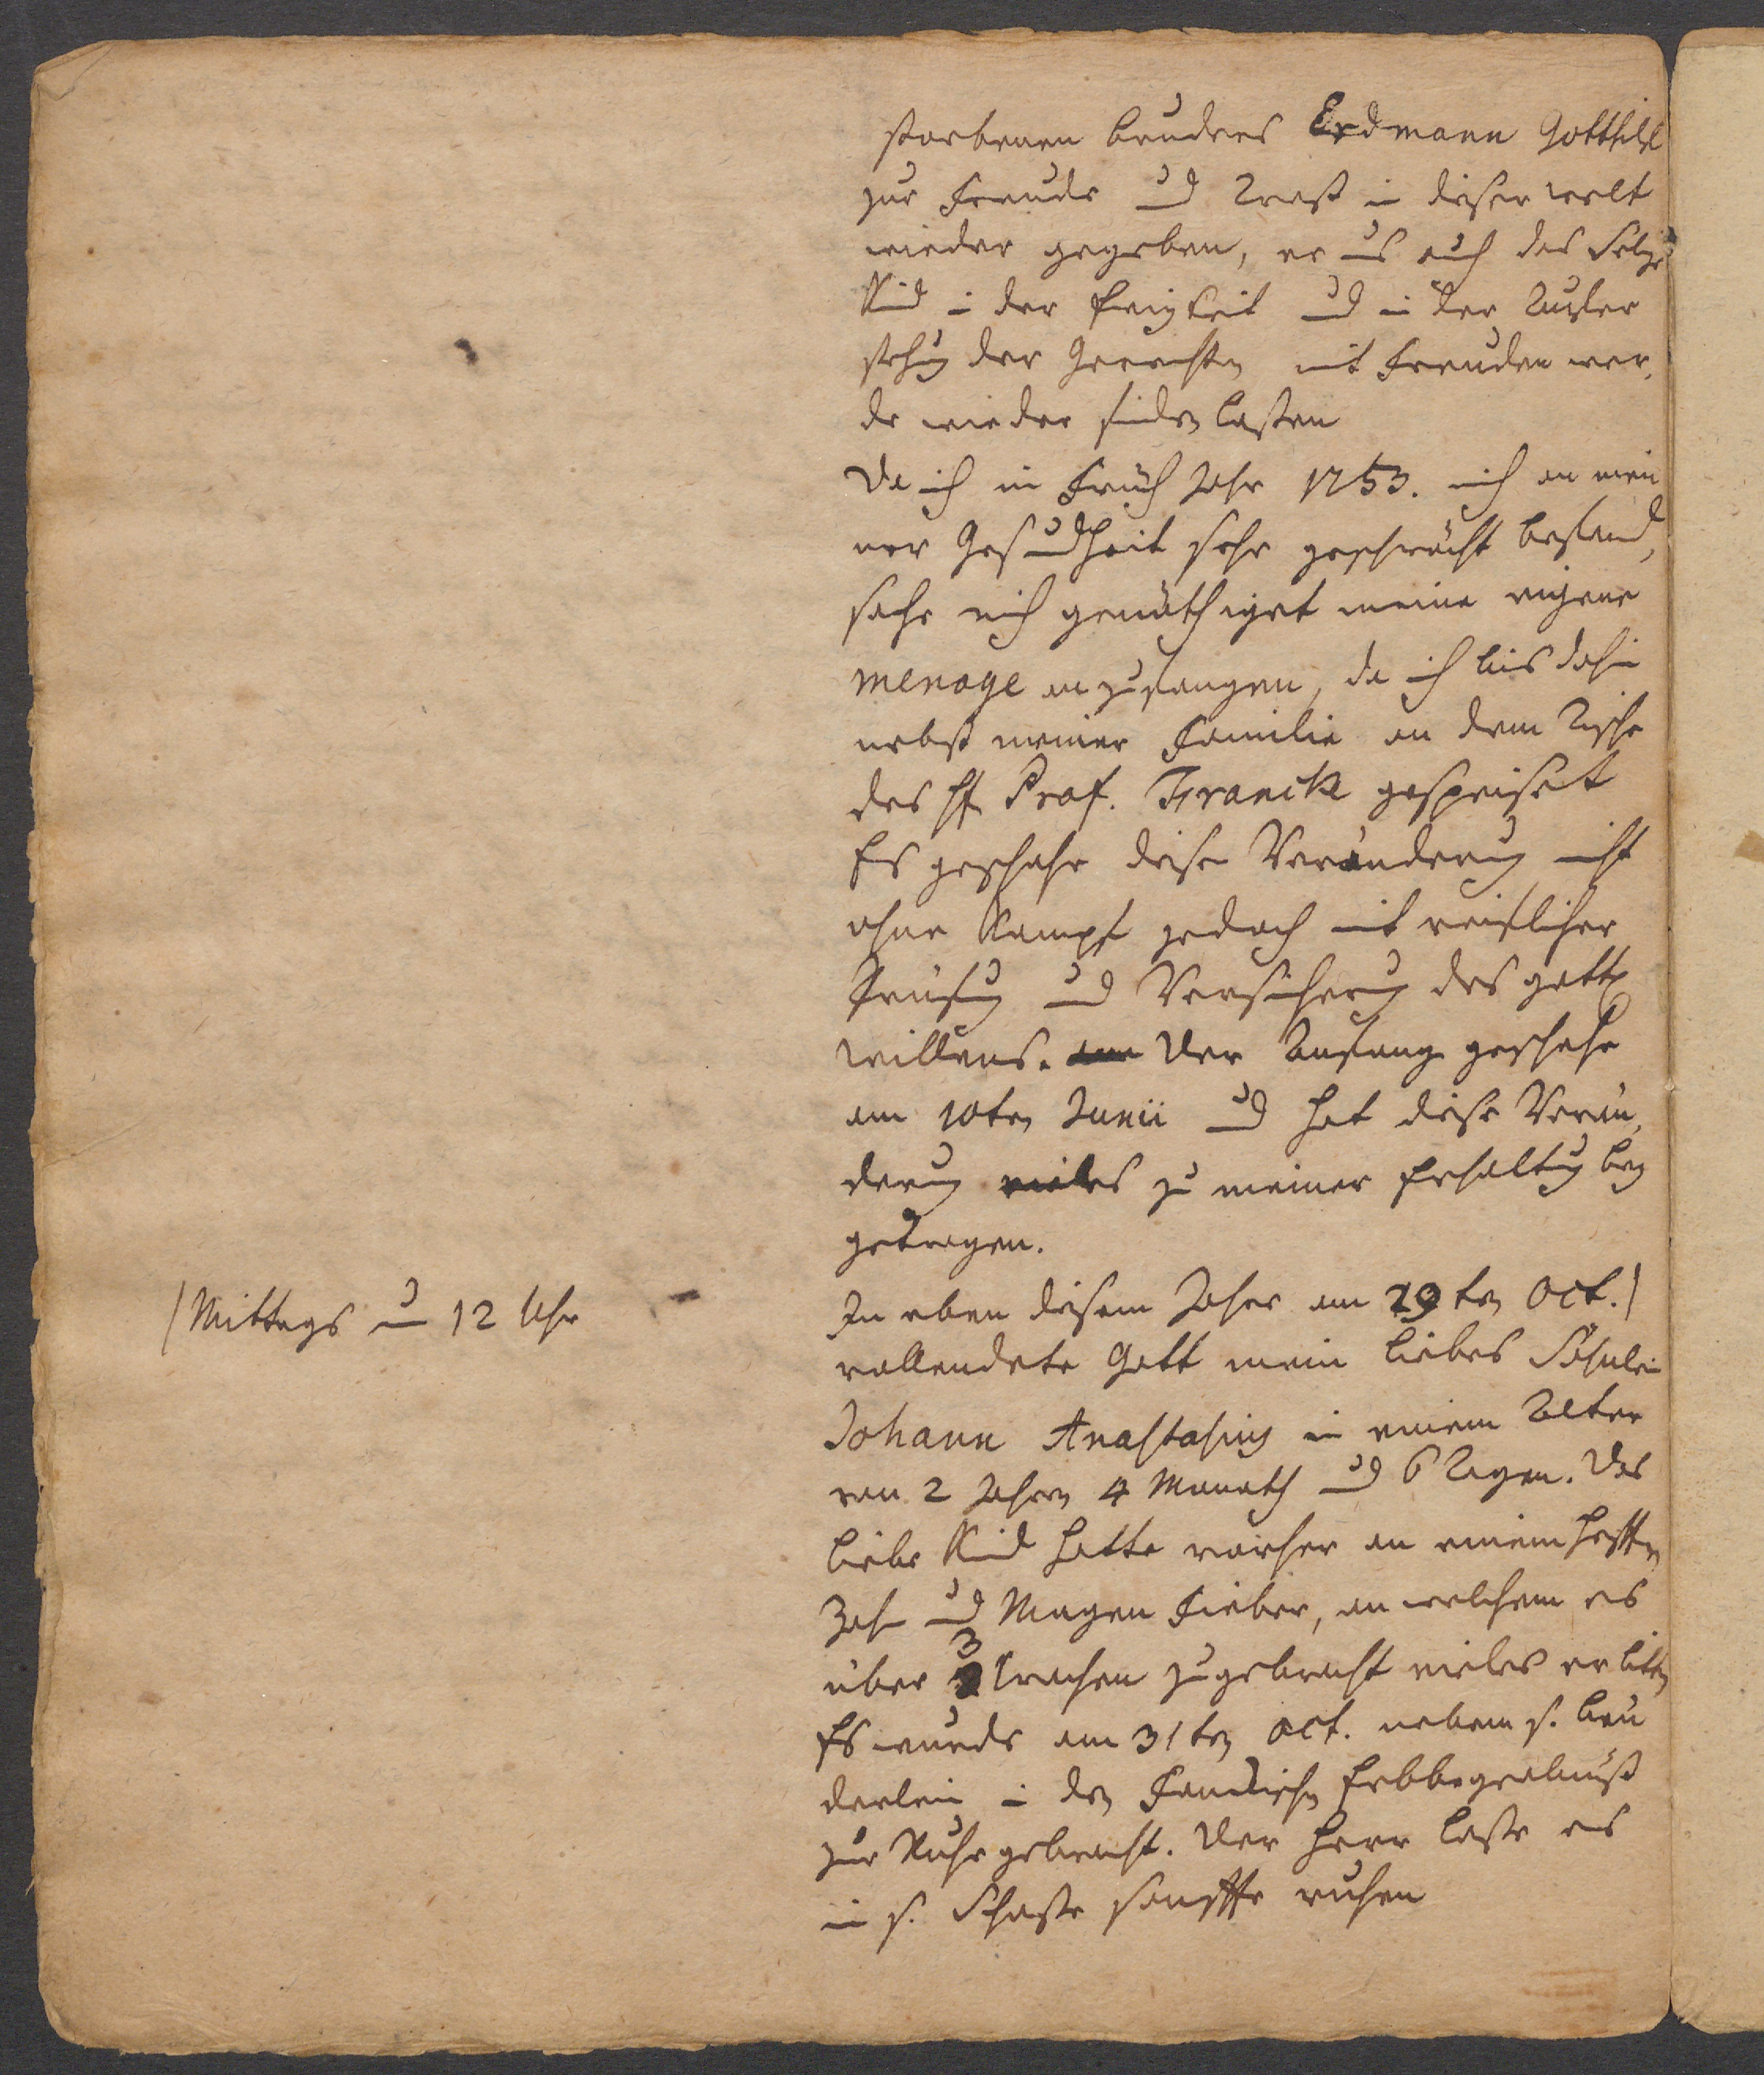 storbenen bruders Erdmann Gotthilf
zur Freude und Trost in diser welt
wieder gegeben, er uns auch das Selge
Kind in der Ewigkeit und in der Aufer
stehung der Gerechten mit Freuden wer,
de wieder finden lassen
Da ich im Früh Jahr 1753. mich an mei
ner Gesundheit sehr geschwächt befand,
sahe mich genöthiget meine eigene
menage anzufangen, da ich bis dahin
nebst meiner Familie an dem Tische
des H. Prof. Francke gespeiset
Es geschahe dise Veränderung nicht
ohne Kampf jedoch mit reiflicher
Prüfung und Versicherung des göttl
willens. Der Anfang geschahe
am 10ten Junii und hat diese Verän,
derung vieles zu meiner Erhaltung bey
getragen.
/Mittags um 12 Uhr
In eben disem Jahre am 29ten Oct./
vollendete Gott mein liebes Söhnlein
Johann Anastasius in einem Alter
von 2 Jahren 4 Monath und 6 Tagen. Das
liebe Kind hatte vorher an einem hefftn
Zahn und Magen Fieber, an welchem es
über 3 wochen zugebracht vieles erlitten
Es wurde am 31ten Oct. nebem s. brü
derlein in den Erbbegräbnüß
zur Ruhe gebracht. Der Herr lasse es
in s. Schosse sanffte ruhen